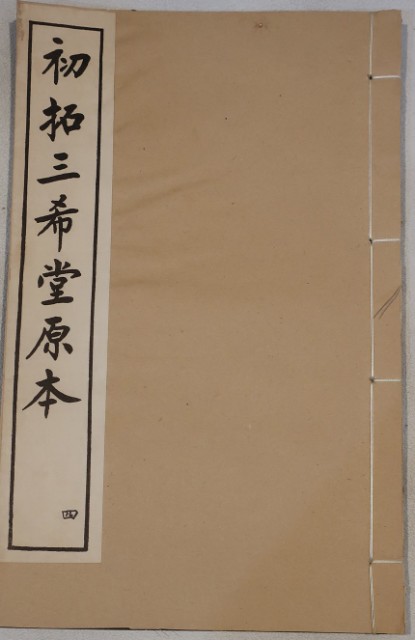 初拓三希堂原本
四